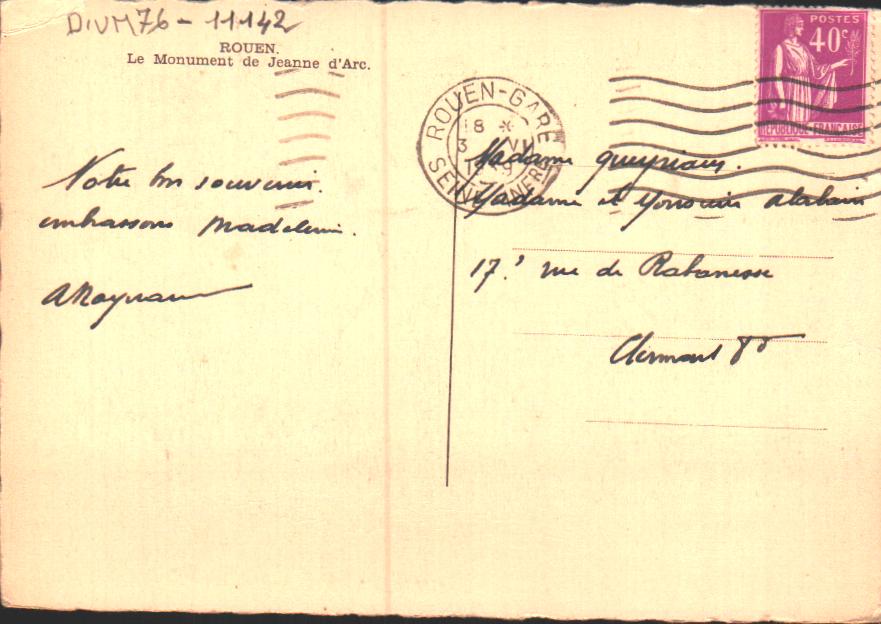 DIVM76 - 11142
ROUEN.
Le Monument de Jeanne d'Arc.
Notre bon souvenir.
embrassons Madeleine.
POSTES
40c
REPUBLIQUE FRANÇAISE
ROUEN-GARE
18
3 VII
SEINE INFRE
Madame
Madame et Monsieur
17, rue de Rabanesse
Clermont Fd